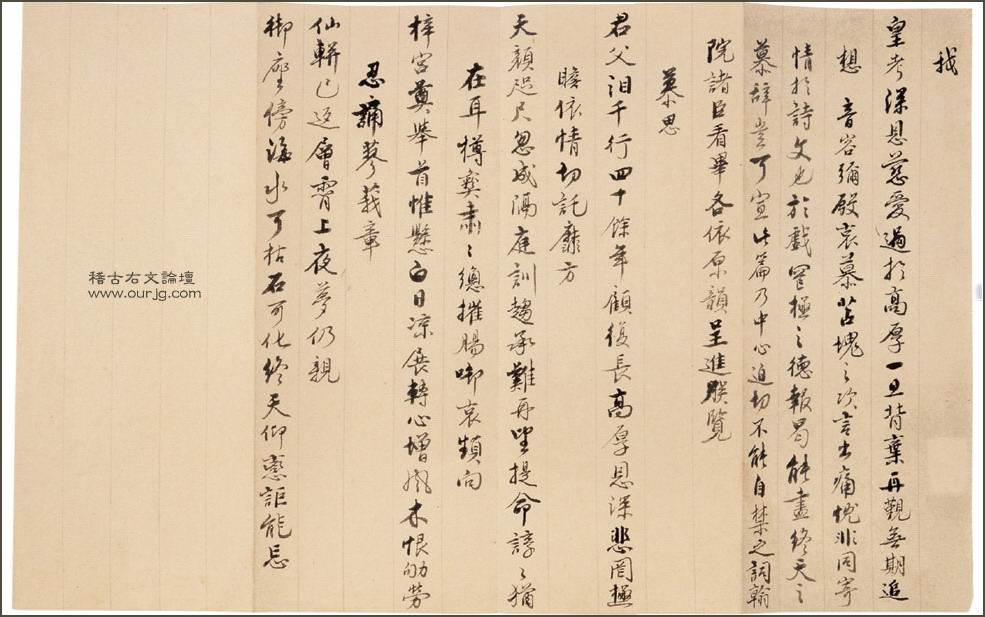 我
皇考深恩慈愛過於高厚一旦背棄再覲無期追
想　音容彌殷哀慕苫塊之次言出痛悦非同寄
情於詩文也於戲罔極之德報曷能盡終天之
慕辭豈可宣此篇乃中心迫切不能自禁之詞翰
院諸臣看畢各依原韻呈進朕覽
慕思
君父泪千行四十餘年顧復長高厚恩深悲罔極
瞻依情切託靡方
天顏咫尺忽成隔庭訓趨承難再望提命諄〻猶
在耳樽彜肅〻總摧腸啣哀頻向
梓宮奠舉首惟懸白日凉展轉心增風木恨劬勞
忍誦蓼莪章
仙輧已返層霄上夜夢仍親
御座傍海水可枯石可化終天仰戀詎能忘
稽古右文論壇
www.ourjg.com